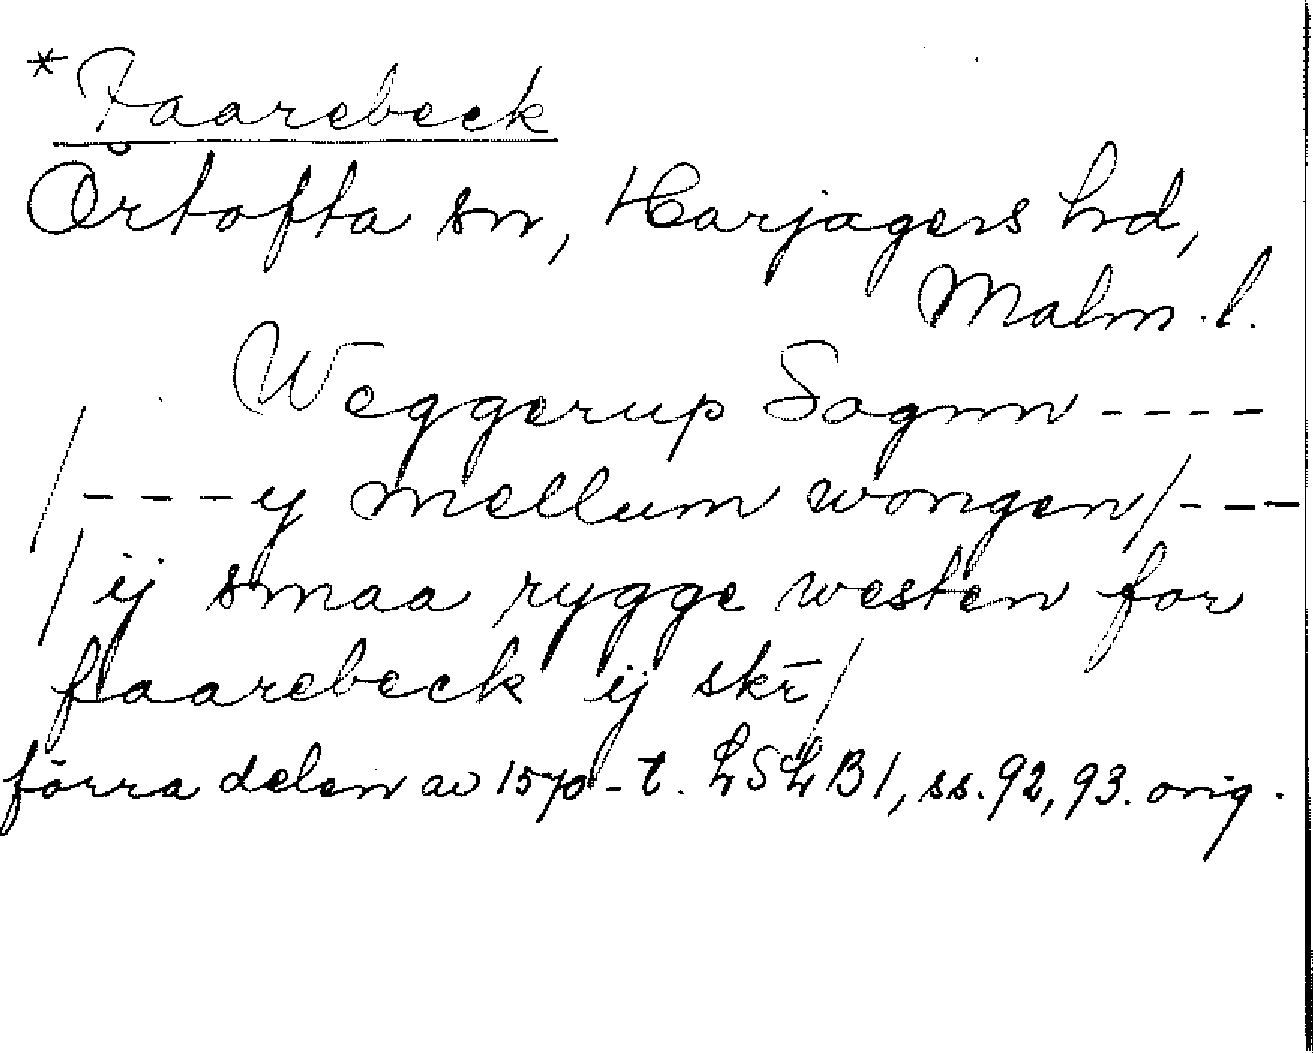 *Faarebeck
Örtofta sn, Harjagers hd,
Malm.l.
Weggerup Sognn ----
/---y mellum wongen/---
/ij smaa rygge westen for
faarebeck ij skr̄/
förra delen av 1570-t. LSLB1, ss.92,93. orig.